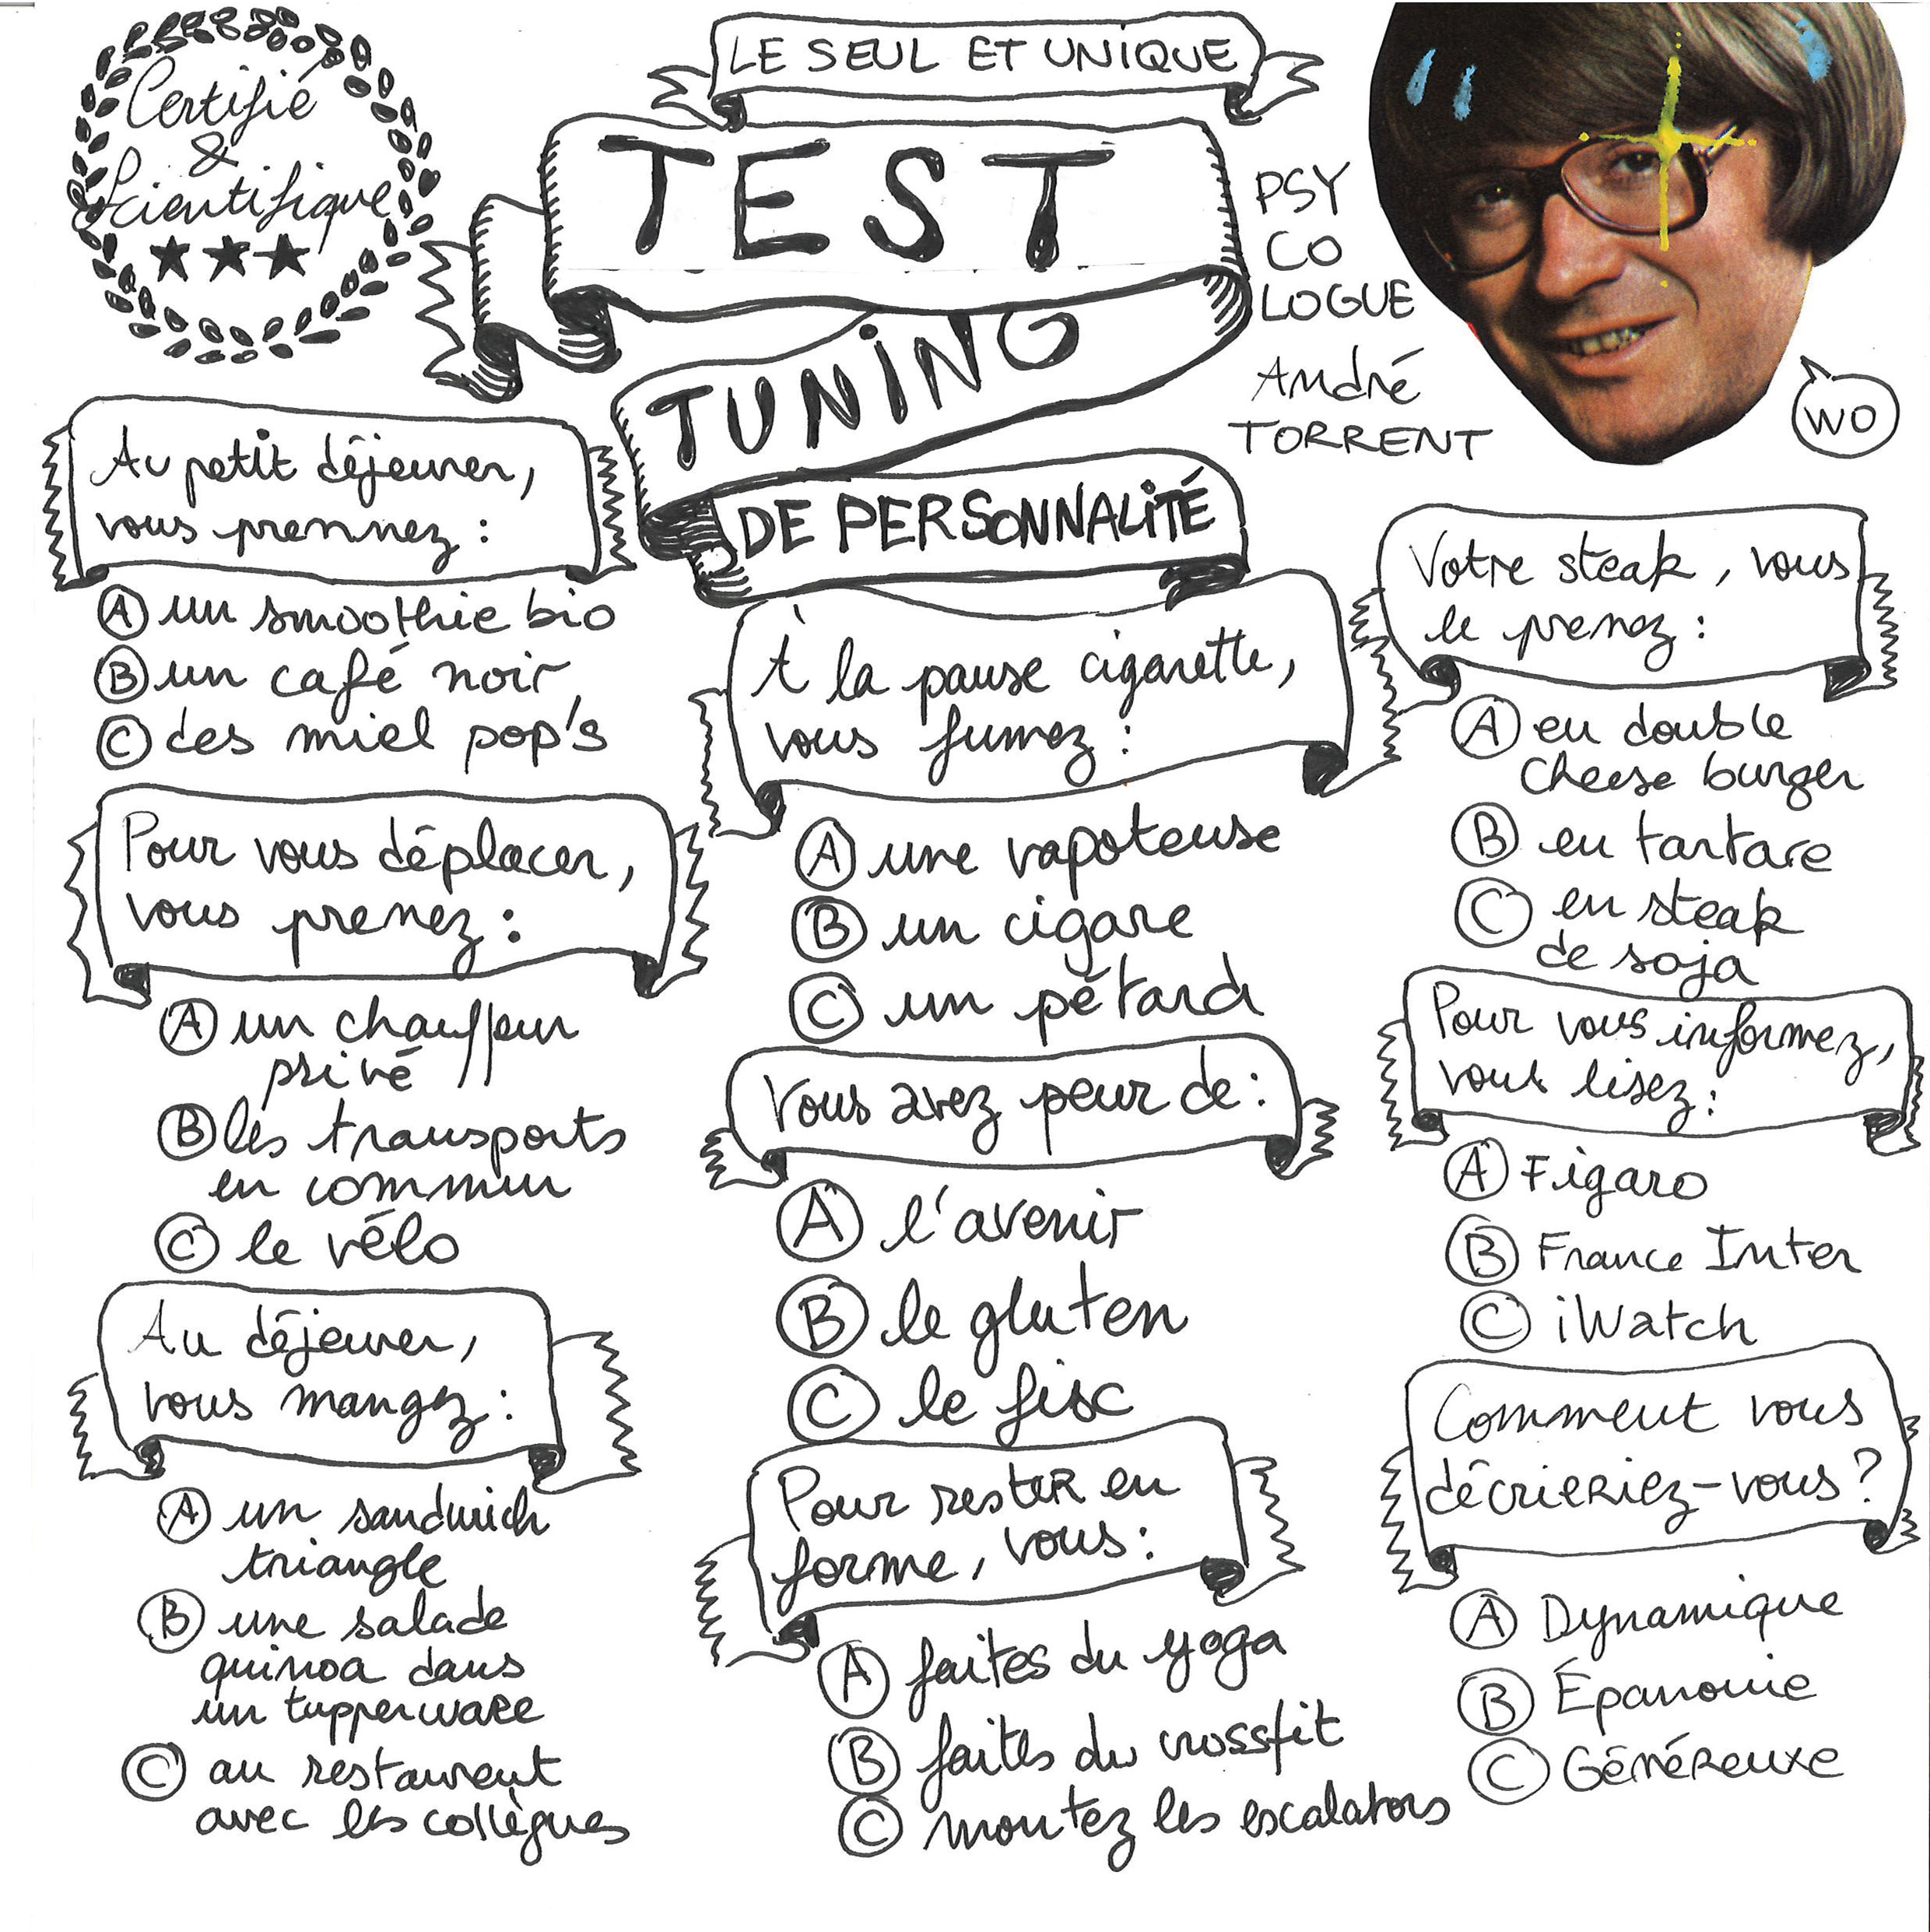 Certifié
&
Scientifique
LE SEUL ET UNIQUE
TEST
TUNING
DE PERSONNALITÉ
PSY
CO
LOGUE
André
TORRENT
WO
Au petit déjeuner,
vous prennez :
A un smoothie bio
B un café noir
C des miel pop's
Pour vous déplacer,
vous prenez :
A un chauffeur
privé
B les transports
en commun
C le vélo
Au déjeuner,
vous mangez :
A un sandwich
triangle
B une salade
quinoa dans
un tupperware
C au restaurent
avec les collègues
À la pause cigarette,
vous fumez :
A une vapoteuse
B un cigare
C un pétard
Vous avez peur de :
A l'avenir
B le gluten
C le fisc
Pour rester en
forme, vous :
A faites du yoga
B faites du crossfit
C montez les escalators
Votre steak, vous
le prenez :
A en double
cheese burger
B en tartare
C en steak
de soja
Pour vous informez,
vous lisez :
A Figaro
B France Inter
C iWatch
Comment vous
décrieriez-vous ?
A Dynamique
B Épanouie
C Généreuxe